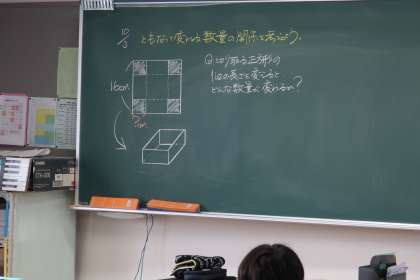 10/3 ともなって変わる数量の関係を考えよう。
Q.切り取る正方形の
1辺の長さを変えると
どんな数量が変わるか?
16cm
?cm